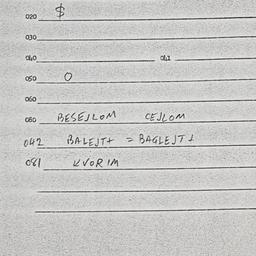 020 $
030
040 041
050 O
060
080 BESEJLOM CEJLOM
042 BALEJT+ = BAGLEJT+
081 KVORIM